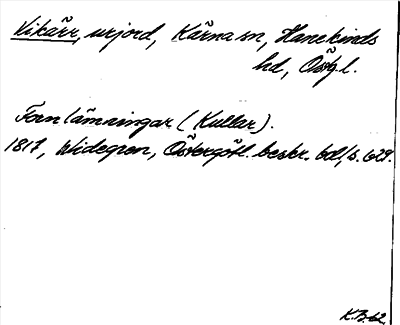 Vikärr, urjord, Kärna sn, Hanekinds
hd, Östgl.
Fornlämningar (Kullar).
1817, Widegren, Östergötl. beskr. bd 1, s. 629.
K.B. 62